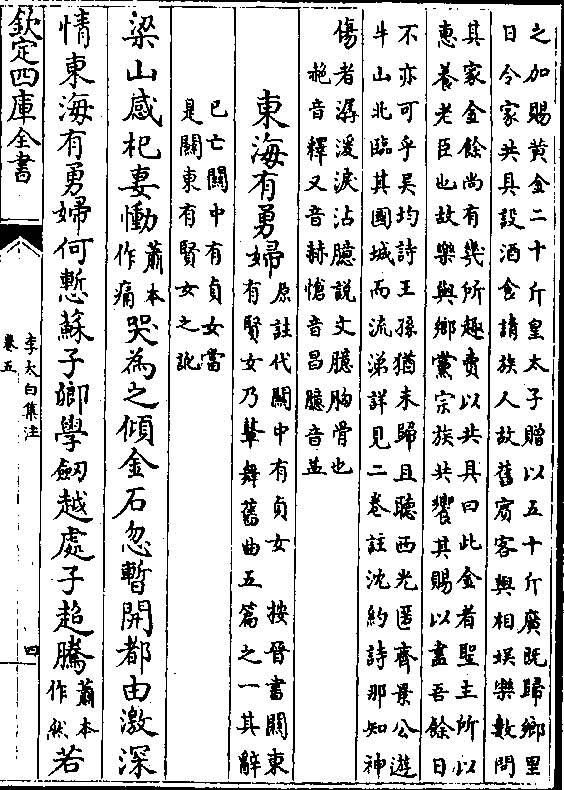 之加賜黃金二十斤皇太子贈以五十斤廣既歸鄉里
日令家共具設酒食請族人故舊賓客與相娱樂數問
其家金餘尚有幾所趣賣以共具曰此金者聖主所以
惠養老臣也故樂與鄉黨宗族共饗其賜以盡吾餘日
不亦可乎吴均詩王孫猶未歸且聽西光匿齊景公遊
牛山北臨其國城而流涕詳見二卷註沈約詩那知神
傷者潺湲淚沾臆説文臆胸骨也
赩音釋又音赫愴音昌臆音益
東海有勇婦原註代關中有貞女
按晉書關東
有賢女乃鼙舞舊曲五篇之一其辭
已亡關中有貞女當
是關東有賢女之訛
梁山感杞妻慟蕭本作痛哭為之傾金石忽暫開都由激深
情東海有勇婦何慙蘇子卿學劒越處子超騰蕭本作然若
欽定四庫全書
李太白集注
卷五
四